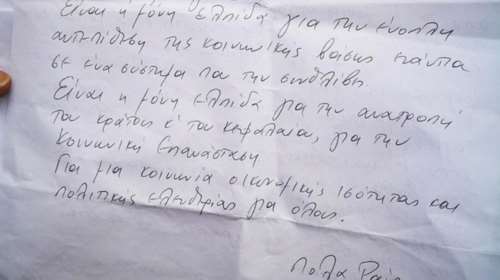 Είναι η μόνη ελπίδα για την ένοπλη
αντεπίθεση της κοινωνικής βάσης ενάντια
σε ένα σύστημα που την συνθλίβει.
Είναι η μόνη ελπίδα για την ανατροπή
του κράτους κ' του κεφαλαίου, για την
Κοινωνική Επανάσταση
Για μια κοινωνία οικονομικής ισότητας και
πολιτικής ελευθερίας για όλους.
Πόλα